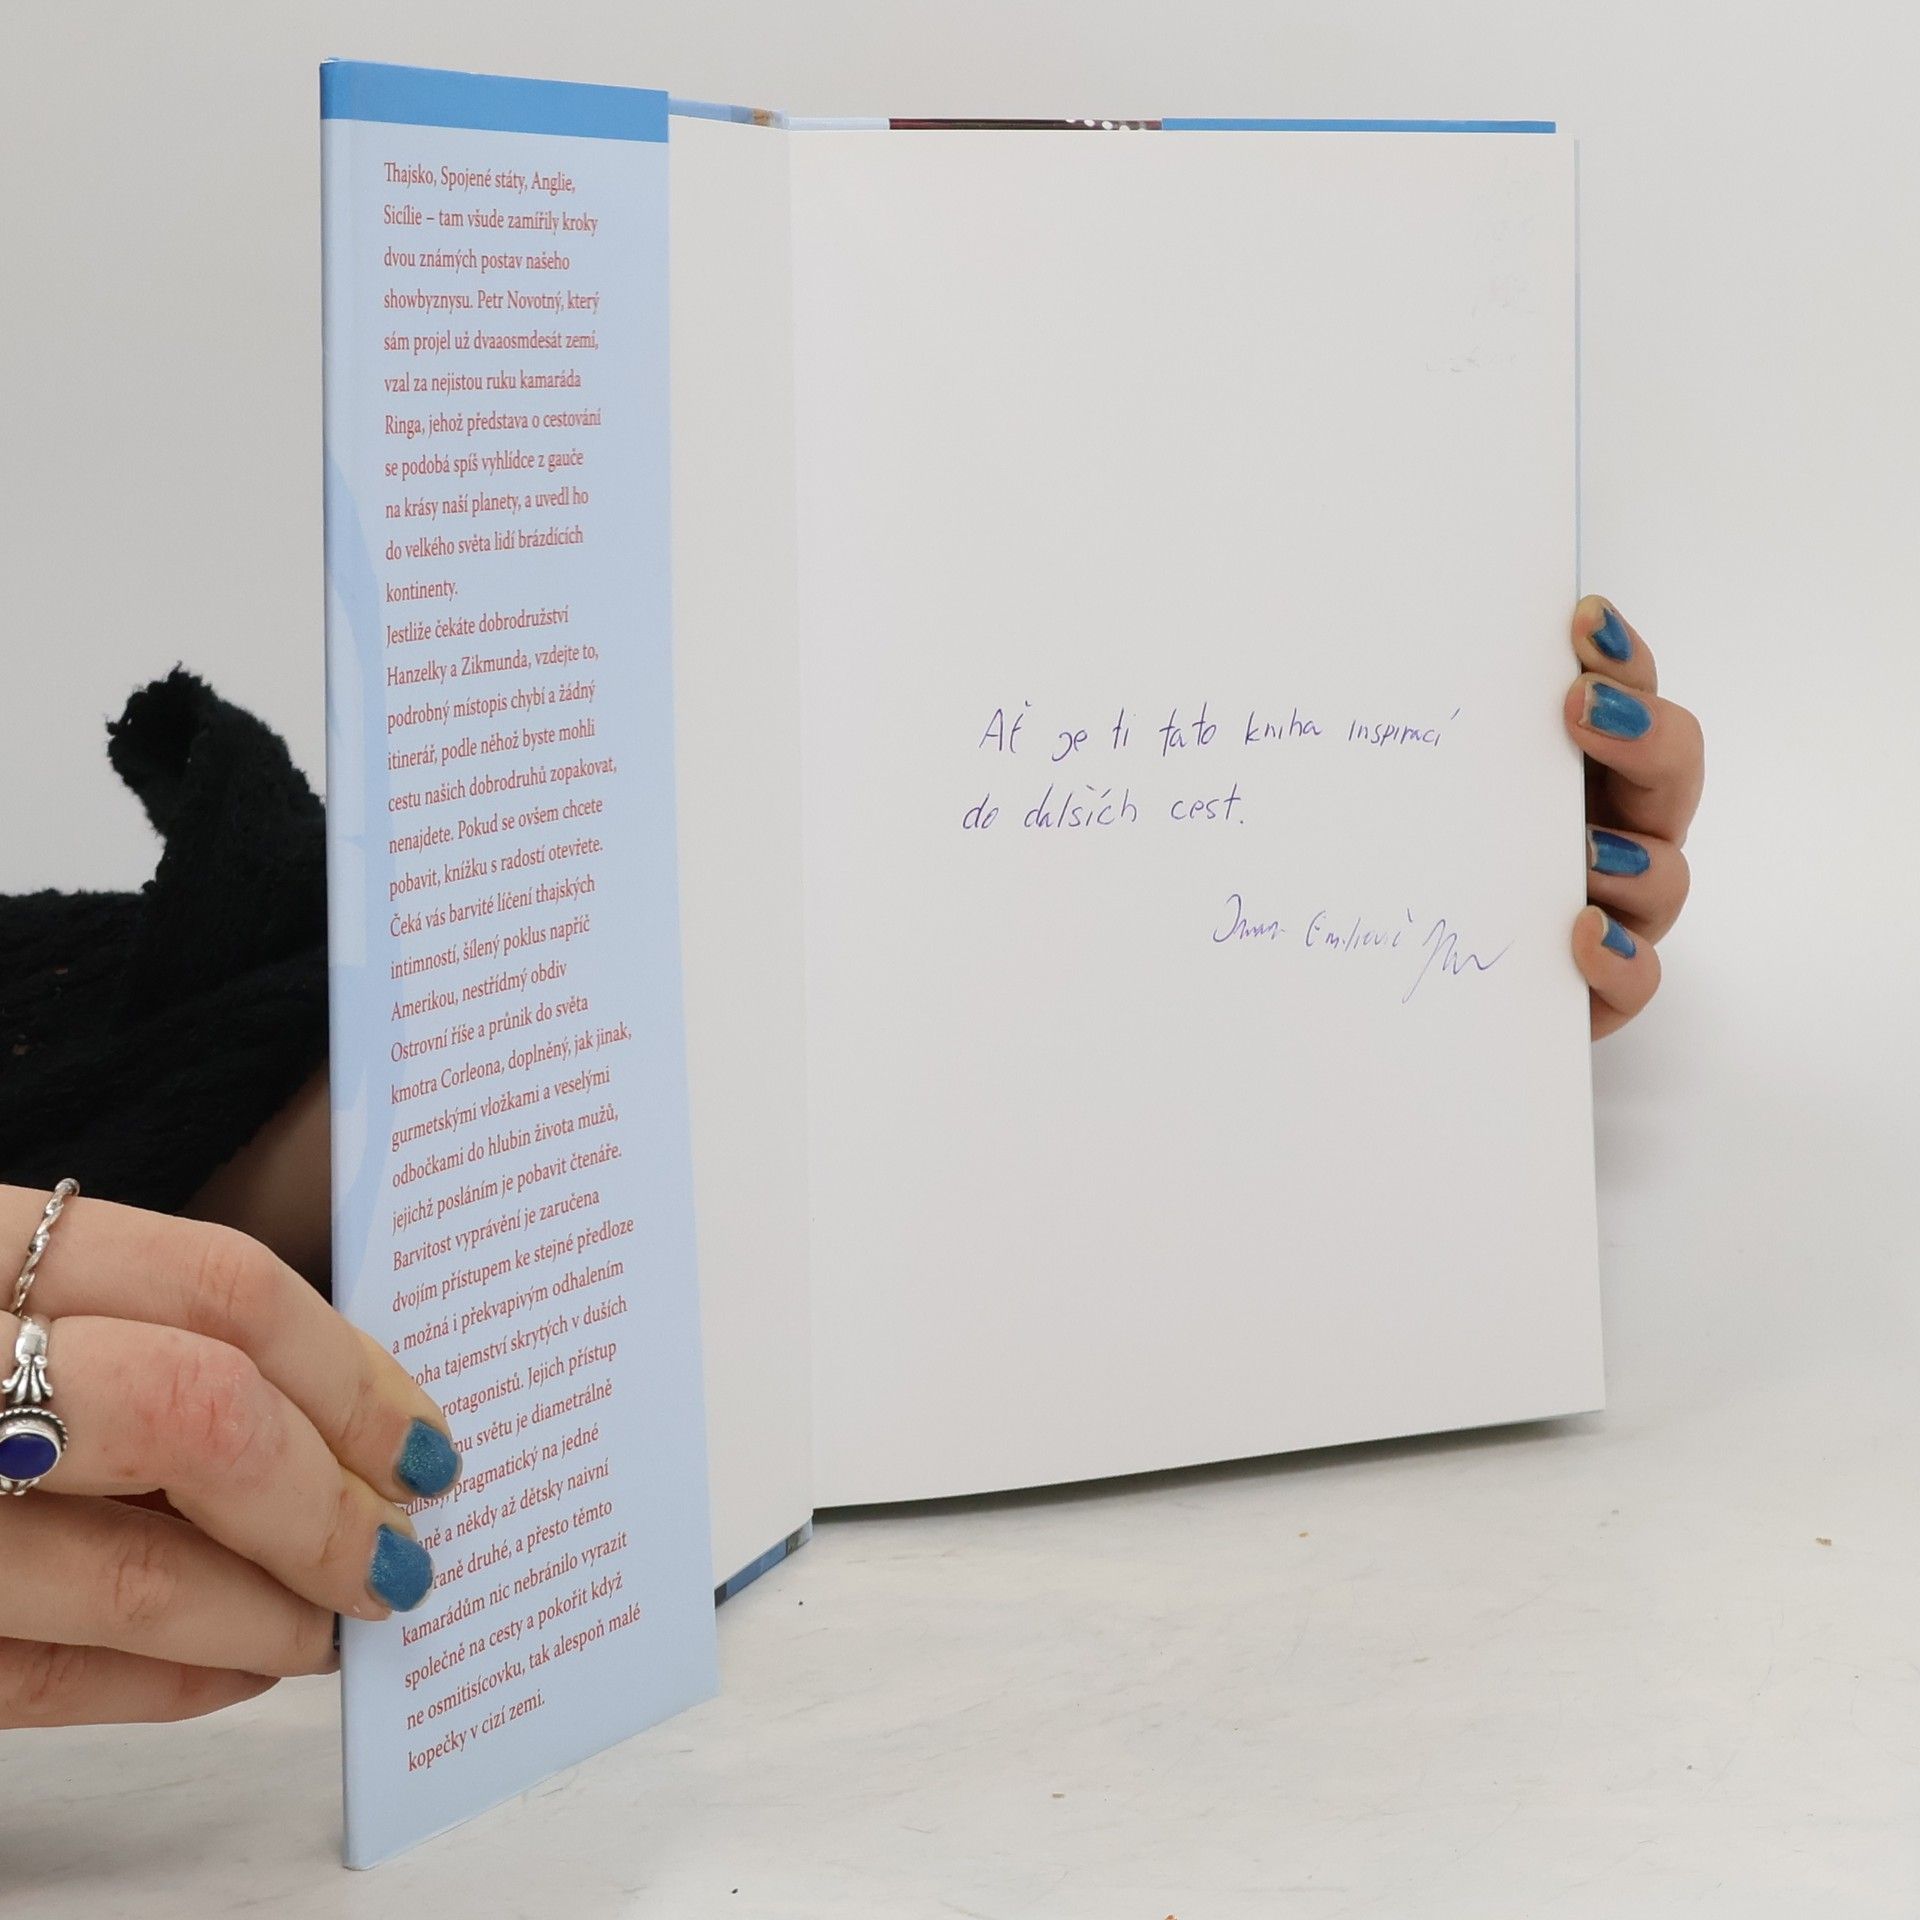 Thajsko, Spojené státy, Anglie,
Sicílie – tam všude zamířily kroky
dvou známých postav našeho
showbyznysu. Petr Novotný, který
sám projel už dvaaosmdesát zemí,
vzal za nejistou ruku kamaráda
Ringa, jehož představa o cestování
se podobá spíš vyhlídce z gauče
na krásy naší planety, a uvedl ho
do velkého světa lidí brázdících
kontinenty.
Jestliže čekáte dobrodružství
Hanzelky a Zikmunda, vzdejte to,
podrobný místopis chybí a žádný
itinerář, podle něhož byste mohli
cestu našich dobrodruhů zopakovat,
nenajdete. Pokud se ovšem chcete
pobavit, knížku s radostí otevřete.
Čeká vás barvité líčení thajských
intimností, šílený poklus napříč
Amerikou, nestřídmý obdiv
Ostrovní říše a průnik do světa
kmotra Corleona, doplněný, jak jinak,
gurmetskými vložkami a veselými
odbočkami do hlubin života mužů,
jejichž posláním je pobavit čtenáře.
Barvitost vyprávění je zaručena
dvojím přístupem ke stejné předloze
a možná i překvapivým odhalením
tajemství skrytých v duších
rotagonistů. Jejich přístup
mu světu je diametrálně
pragmatický na jedné
a někdy až dětsky naivní
druhé, a přesto těmto
kamarádům nic nebránilo vyrazit
společně na cesty a pokořit když
ne osmitisícovku, tak alespoň malé
kopečky v cizí zemi.
Ať je ti tato kniha inspirací
do dalších cest.